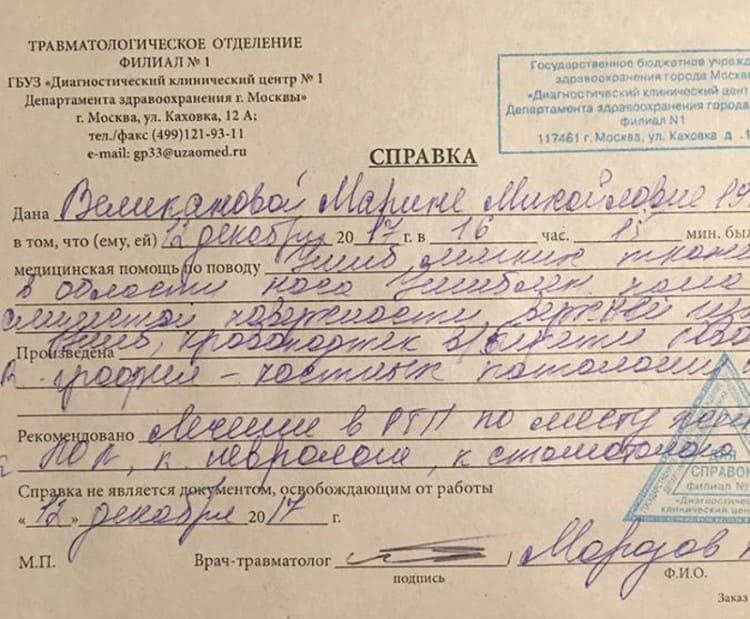 ТРАВМАТОЛОГИЧЕСКОЕ ОТДЕЛЕНИЕ
ФИЛИАЛ № 1
ГБУЗ «Диагностический клинический центр № 1
Департамента здравоохранения г. Москвы»
г. Москва, ул. Каховка, 12 А;
тел./факс (499)121-93-11
e-mail: gp33@uzaomed.ru
Государственное бюджетное учрежд
здравоохранения города Москв
«Диагностический клинический цент
Департамента здравоохранения города
филиал N1
117461 г. Москва, ул. Каховка д .1
СПРАВКА
Дана Великановой Марине Михайловне 19
в том, что (ему, ей) 12 декабря 2017 г. в 16 час. 15 мин. был
медицинская помощь по поводу Ушиб мягких ткане
в области носа Ушиблен
слизистой поверхности верхней
Произведена
R графия – костных патологии
Рекомендовано Лечение в РТП по месту
к неврологу, к стоматологу
Справка не является документом, освобождающим от работы
«12» декабря 2017 г.
М.П. Врач-травматолог Морозов
подпись Ф.И.О.
СПРАВОК
филиал №
«Диагностичес
клинический цен
Заказ